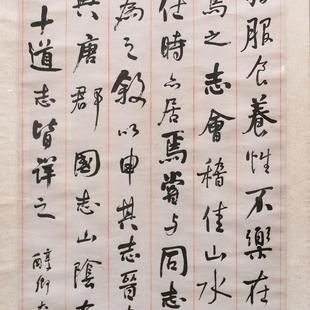 服食養性不樂在
焉之志會稽佳山水
仕時亦居焉嘗与同志
為之敘以申其志晉
唐郡國志山陰
十道志皆詳之 醇卿